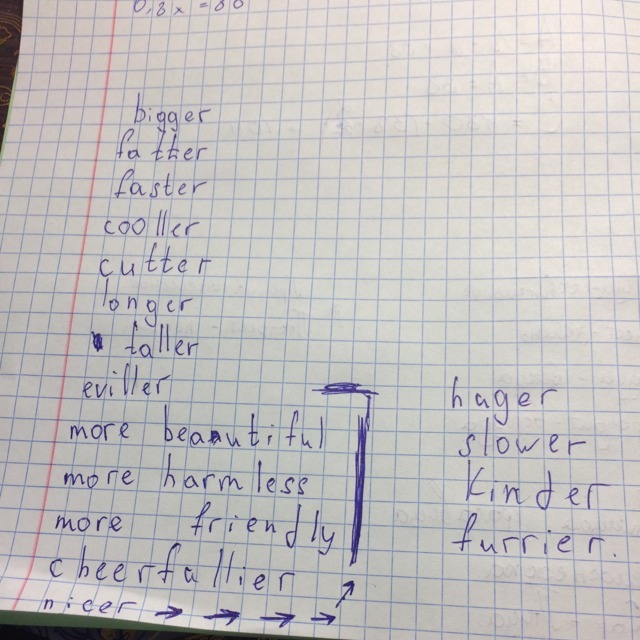 0,8x = 80
bigger
fatter
faster
cooller
cutter
longer
taller
eviller
more beautiful
more harmless
more friendly
cheerfallier
nicer
huger
slower
kinder
furrier.